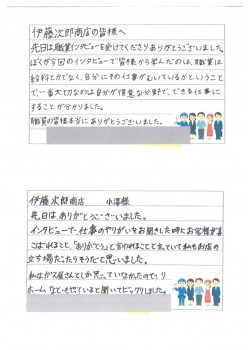 伊藤次郎商店の皆様へ
先日は職業インタビューを受けてくださりありがとうございました。
ぼくが今回のインタビューで皆様から学んだのは、職業は
給料とかでなく、自分にその仕事がむいているかということ
で、一番大切なのは自分が得意な分野で、できる仕事に
することが分かりました。
職員の皆様本当にありがとうございました。
伊藤次郎商店 小澤様
先日は、ありがとうございました。
インタビューで、仕事のやりがいをお聞きした時にお客様が喜
こばれることと、「ありがとう」と言われることと言っていて私もお店の
立ち場だったらそうだと思いました。
私はガス屋さんとしか思っていなかったので、リ
ホームなども やっていると聞いてビックリしました。